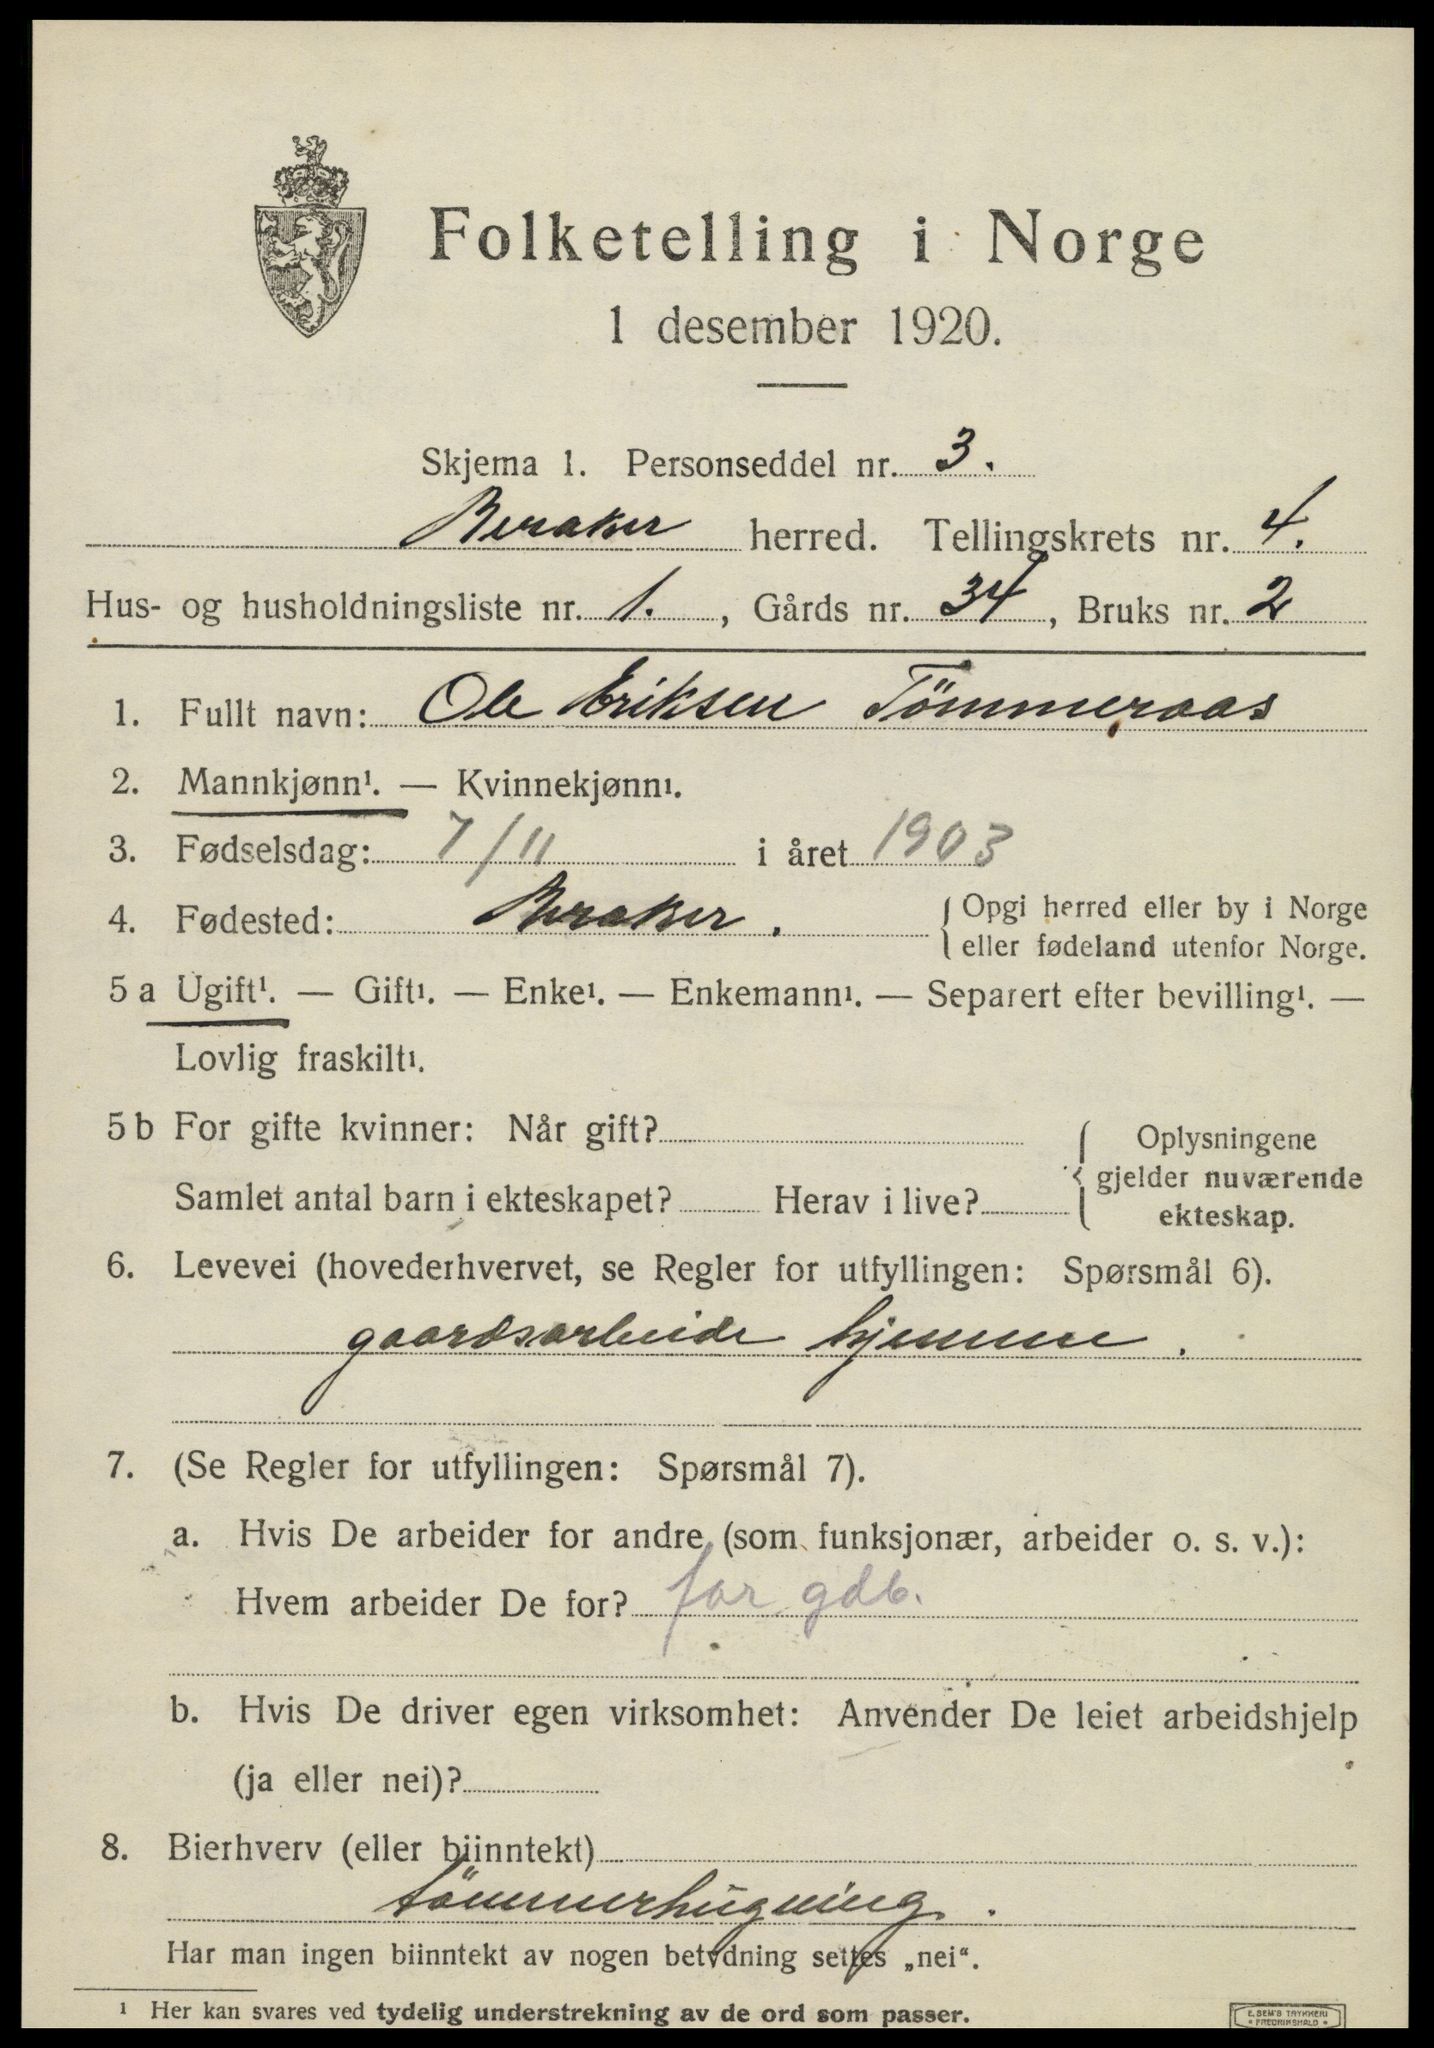 Folketelling i Norge
1 desember 1920.
Skjema 1. Personseddel nr. 3.
Meraker herred. Tellingskrets nr. 4.
Hus- og husholdningsliste nr. 1., Gårds nr. 34, Bruks nr. 2
1. Fullt navn: Ole Eriksen Tömmeraas
2. Mannkjønn¹. — Kvinnekjønn¹.
3. Fødselsdag: 7/11 i året 1903
4. Fødested: Meraker. { Opgi herred eller by i Norge
eller fødeland utenfor Norge.
5 a Ugift¹. — Gift¹. — Enke¹. — Enkemann¹. — Separert efter bevilling¹. —
Lovlig fraskilt¹.
5 b For gifte kvinner: Når gift?
Samlet antal barn i ekteskapet? Herav i live?
{ Oplysningene
gjelder nuværende
ekteskap.
6. Levevei (hovederhvervet, se Regler for utfyllingen: Spørsmål 6).
gaardsarbeide hjemme.
7. (Se Regler for utfyllingen: Spørsmål 7).
a. Hvis De arbeider for andre (som funksjonær, arbeider o. s. v.):
Hvem arbeider De for? far gdb.
b. Hvis De driver egen virksomhet: Anvender De leiet arbeidshjelp
(ja eller nei)?
8. Bierhverv (eller biinntekt)
tömmerhugning.
Har man ingen biinntekt av nogen betydning settes „nei“.
¹ Her kan svares ved tydelig understrekning av de ord som passer.
E. SEM'S TRYKKERI
• FREDRIKSHALD •